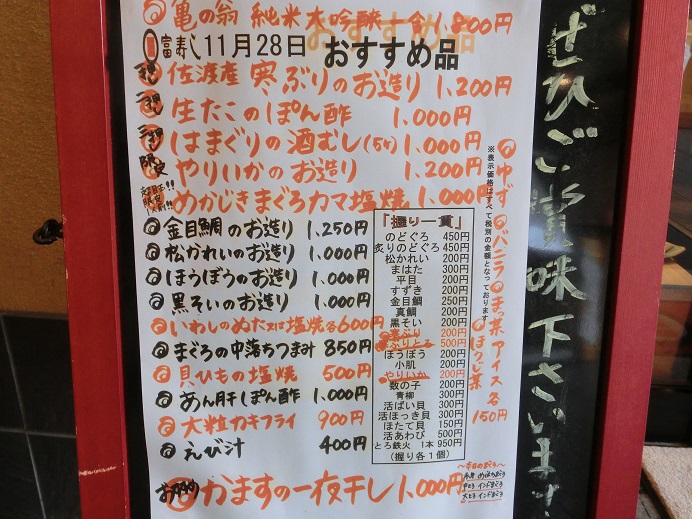 亀の翁 純米大吟醸 一合 1,800円
富寿し 11月28日 おすすめ品
佐渡産 寒ぶりのお造り 1,200円
生たこのぽん酢 1,000円
はまぐりの酒むし(5ヶ) 1,000円
やりいかのお造り 1,200円
めかじきまぐろカマ塩焼 1,000円
金目鯛のお造り 1,250円
松かれいのお造り 1,000円
ほうぼうのお造り 1,000円
黒そいのお造り 1,000円
いわしのぬた又は塩焼 各600円
まぐろの中落ちつまみ 850円
貝ひもの塩焼 500円
あん肝しぽん酢 1,000円
大粒カキフライ 900円
えび汁 400円
かますの一夜干し 1,000円
「握り一貫」
のどぐろ 450円
炙りのどぐろ 450円
松かれい 200円
まはた 300円
平目 200円
すずき 200円
金目鯛 250円
真鯛 200円
黒そい 200円
寒ぶり 200円
ぶりとろ 500円
ほうぼう 200円
小肌 200円
やりいか 200円
数の子 200円
青柳 300円
活ばい貝 300円
活ほっき貝 300円
ほたて貝 150円
活あわび 500円
とろ鉄火 1本 950円
(握り各1個)
※表示価格はすべて税別の金額となっております
ゆず
バニラ
まっ茶 アイス 各150円
ほうじ茶
〜本日のまぐろ〜
中とろ インドまぐろ
大とろ インドまぐろ
ぜひご賞味下さいませ